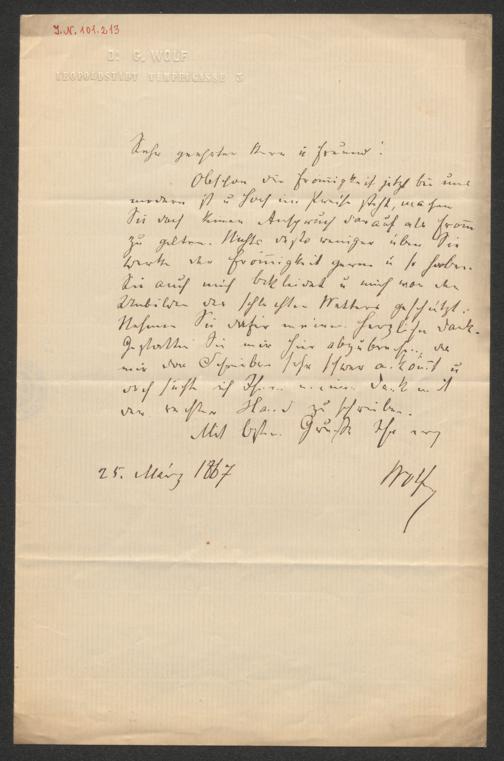 J.N. 101.213
Dr G. WOLF
LEOPOLDSTADT TEMPELGASSE 3
Sehr geehrter Herr u Freund!
Obschon die Frömigkeit jetzt bei uns
modern ist u hoch im Preise steht, machen
Sie doch keinen Anspruch darauf als from̄
zu gelten. Nichts desto weniger üben Sie
Werke der Frömigkeit gerne u so haben
Sie auch mich bekleidet u mich vor den
Unbilden des schlechten Wetters geschützt.
Nehmen Sie dafür meinen herzlichen Dank.
Gestatten Sie mir hier abzubrechen, da
mir das Schreiben sehr schwer ankom̄t u
doch suchte ich Ihnen meinen Dank mit
der rechten Hand zu schreiben.
Mit besten Gruße Ihr erg
25. März 1867
Wolf